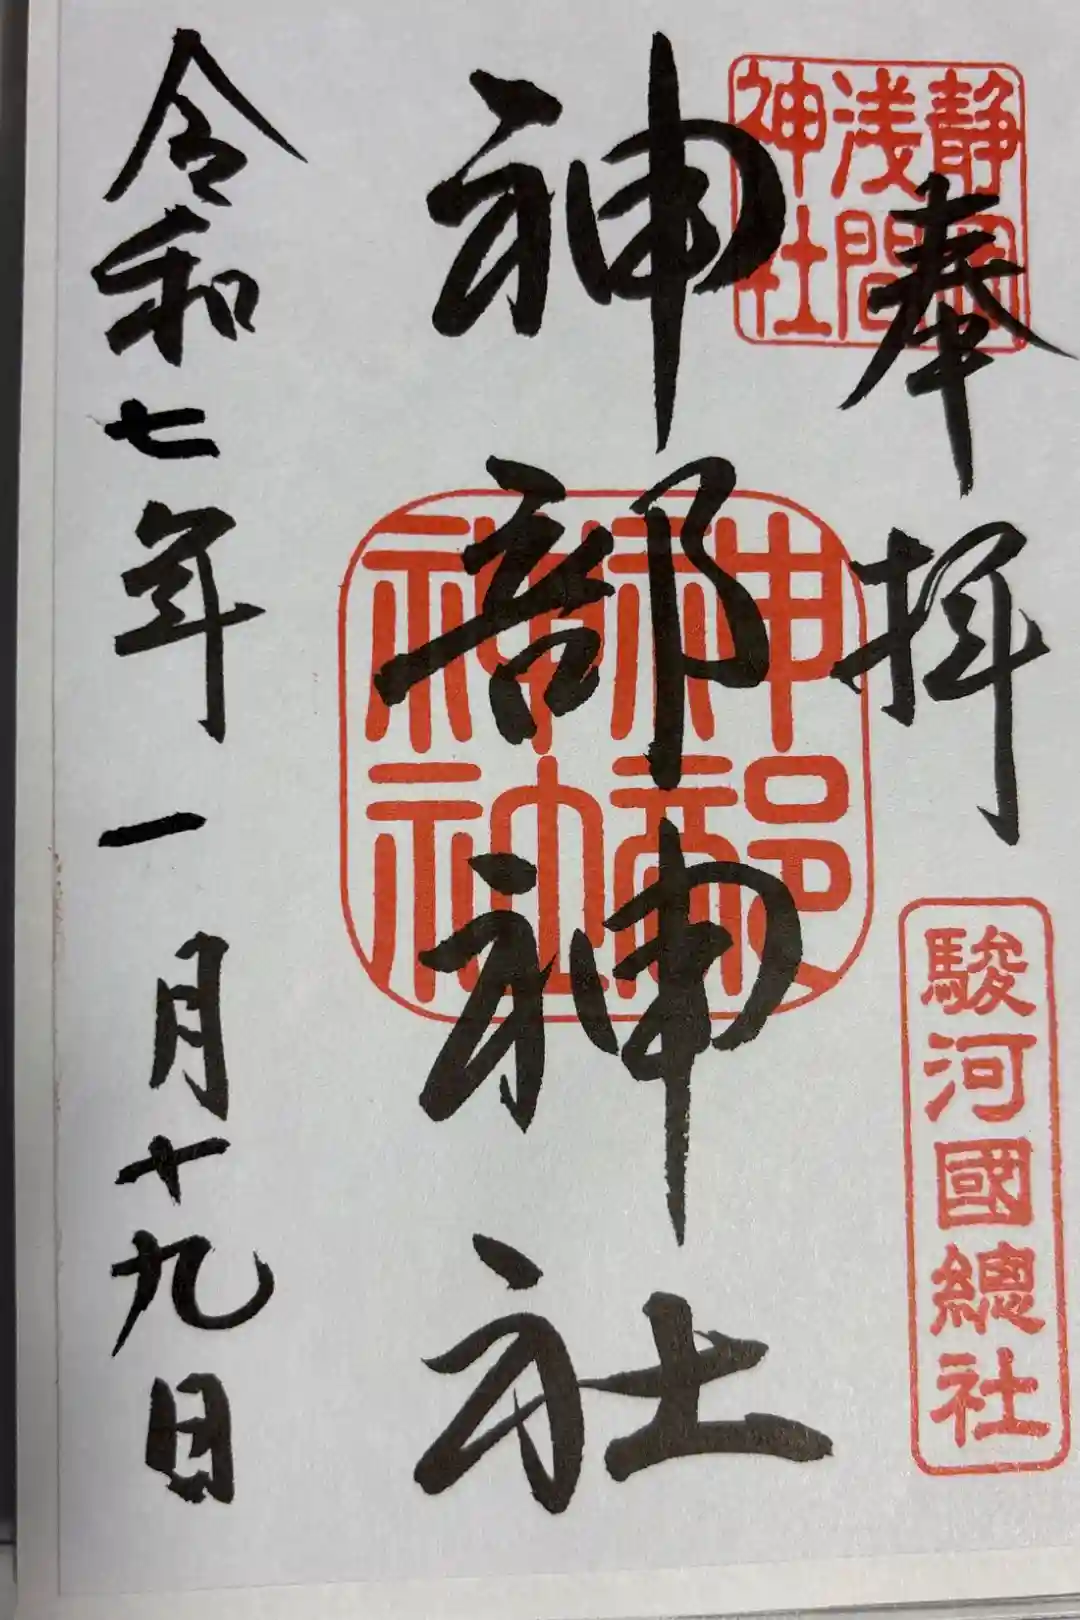 奉拝
静岡
浅間
神社
駿河國總社
神部神社
神部
神社
令和七年一月十九日